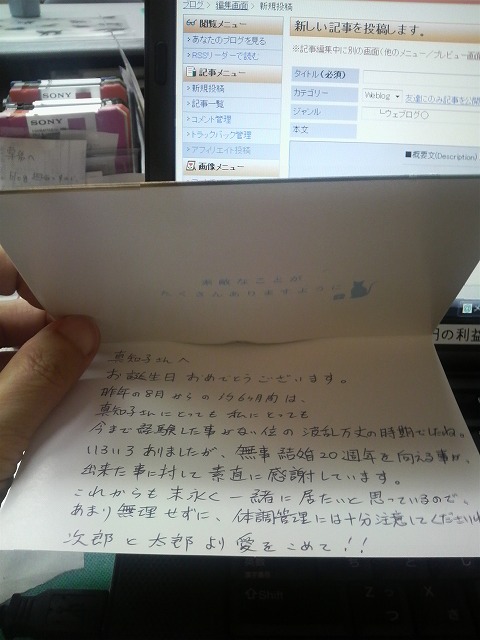 ブログ > 編集画面 > 新規投稿
閲覧メニュー
> あなたのブログを見る
> RSSリーダーで読む
記事メニュー
> 新規投稿
> 記事一覧
> コメント管理
> トラックバック管理
> アフィリエイト投稿
画像メニュー
新しい記事を投稿します。
※記事編集中に別の画面(他のメニュー/プレビュー画面
タイトル(必須)
カテゴリー
Weblog
友達にのみ記事を公開
ジャンル
└ウェブログ○
本文
■概要文(Description)
SONY
SONY
素敵なことが
たくさんありますように
円の利益
真知子さんへ
お誕生日おめでとうございます。
昨年の8月からの約6ヶ月間は、
真知子さんにとっても私にとっても
今まで経験した事がない位の波乱万丈の時期でしたね。
いろいろありましたが、無事結婚20週年を向える事が、
出来た事に対して素直に感謝しています。
これからも末永く一緒に居たいと思っているので、
あまり無理せずに、体調管理には十分注意してくださいね
次郎と太郎より愛をこめて!!
Shift